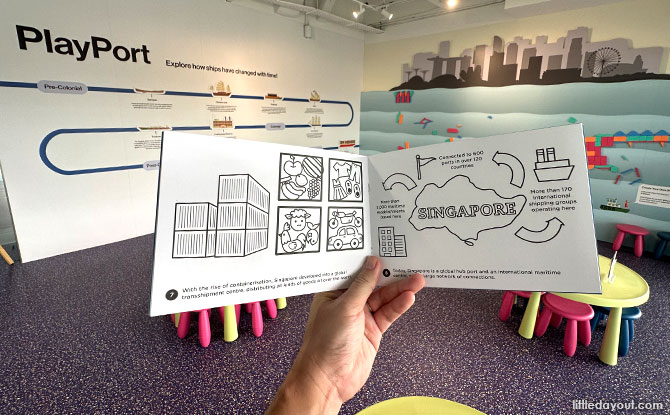 PlayPort
Explore how ships have changed with time!
Pre-Colonial
Connected to 600
ports in over 120
countries
More than 170
international
shipping groups
operating here
SINGAPORE
7
With the rise of containerisation, Singapore developed into a global
transshipment centre, distributing all kinds of goods all over the world.
8
Today, Singapore is a global hub port and an international maritime
network of connections.
littledayout.com